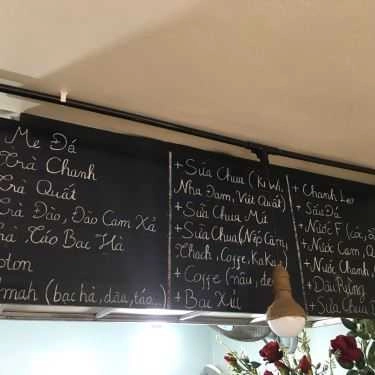 Me Đá
Trà Chanh
Trà Quất
Trà Đào, Đào Cam Xả
Trà Táo Bạc Hà
pton
mah (bạc hà, dâu, táo..)
+ Sữa Chua (Ki Wi,
Nha Đam, Việt Quất)
+ Sữa Chua Mít
+ Sữa Chua (Nếp Cẩm,
Thạch, Coffe, Ka Kao)
+ Coffe (nâu, đe
+ Bạc Xíu
+ Chanh Leo
+ Sấu Đá
+ Nước F (
+ Nước Cam, Q
+ Nước Chanh,
+ Dâu Rừng
+ Sữa Chua